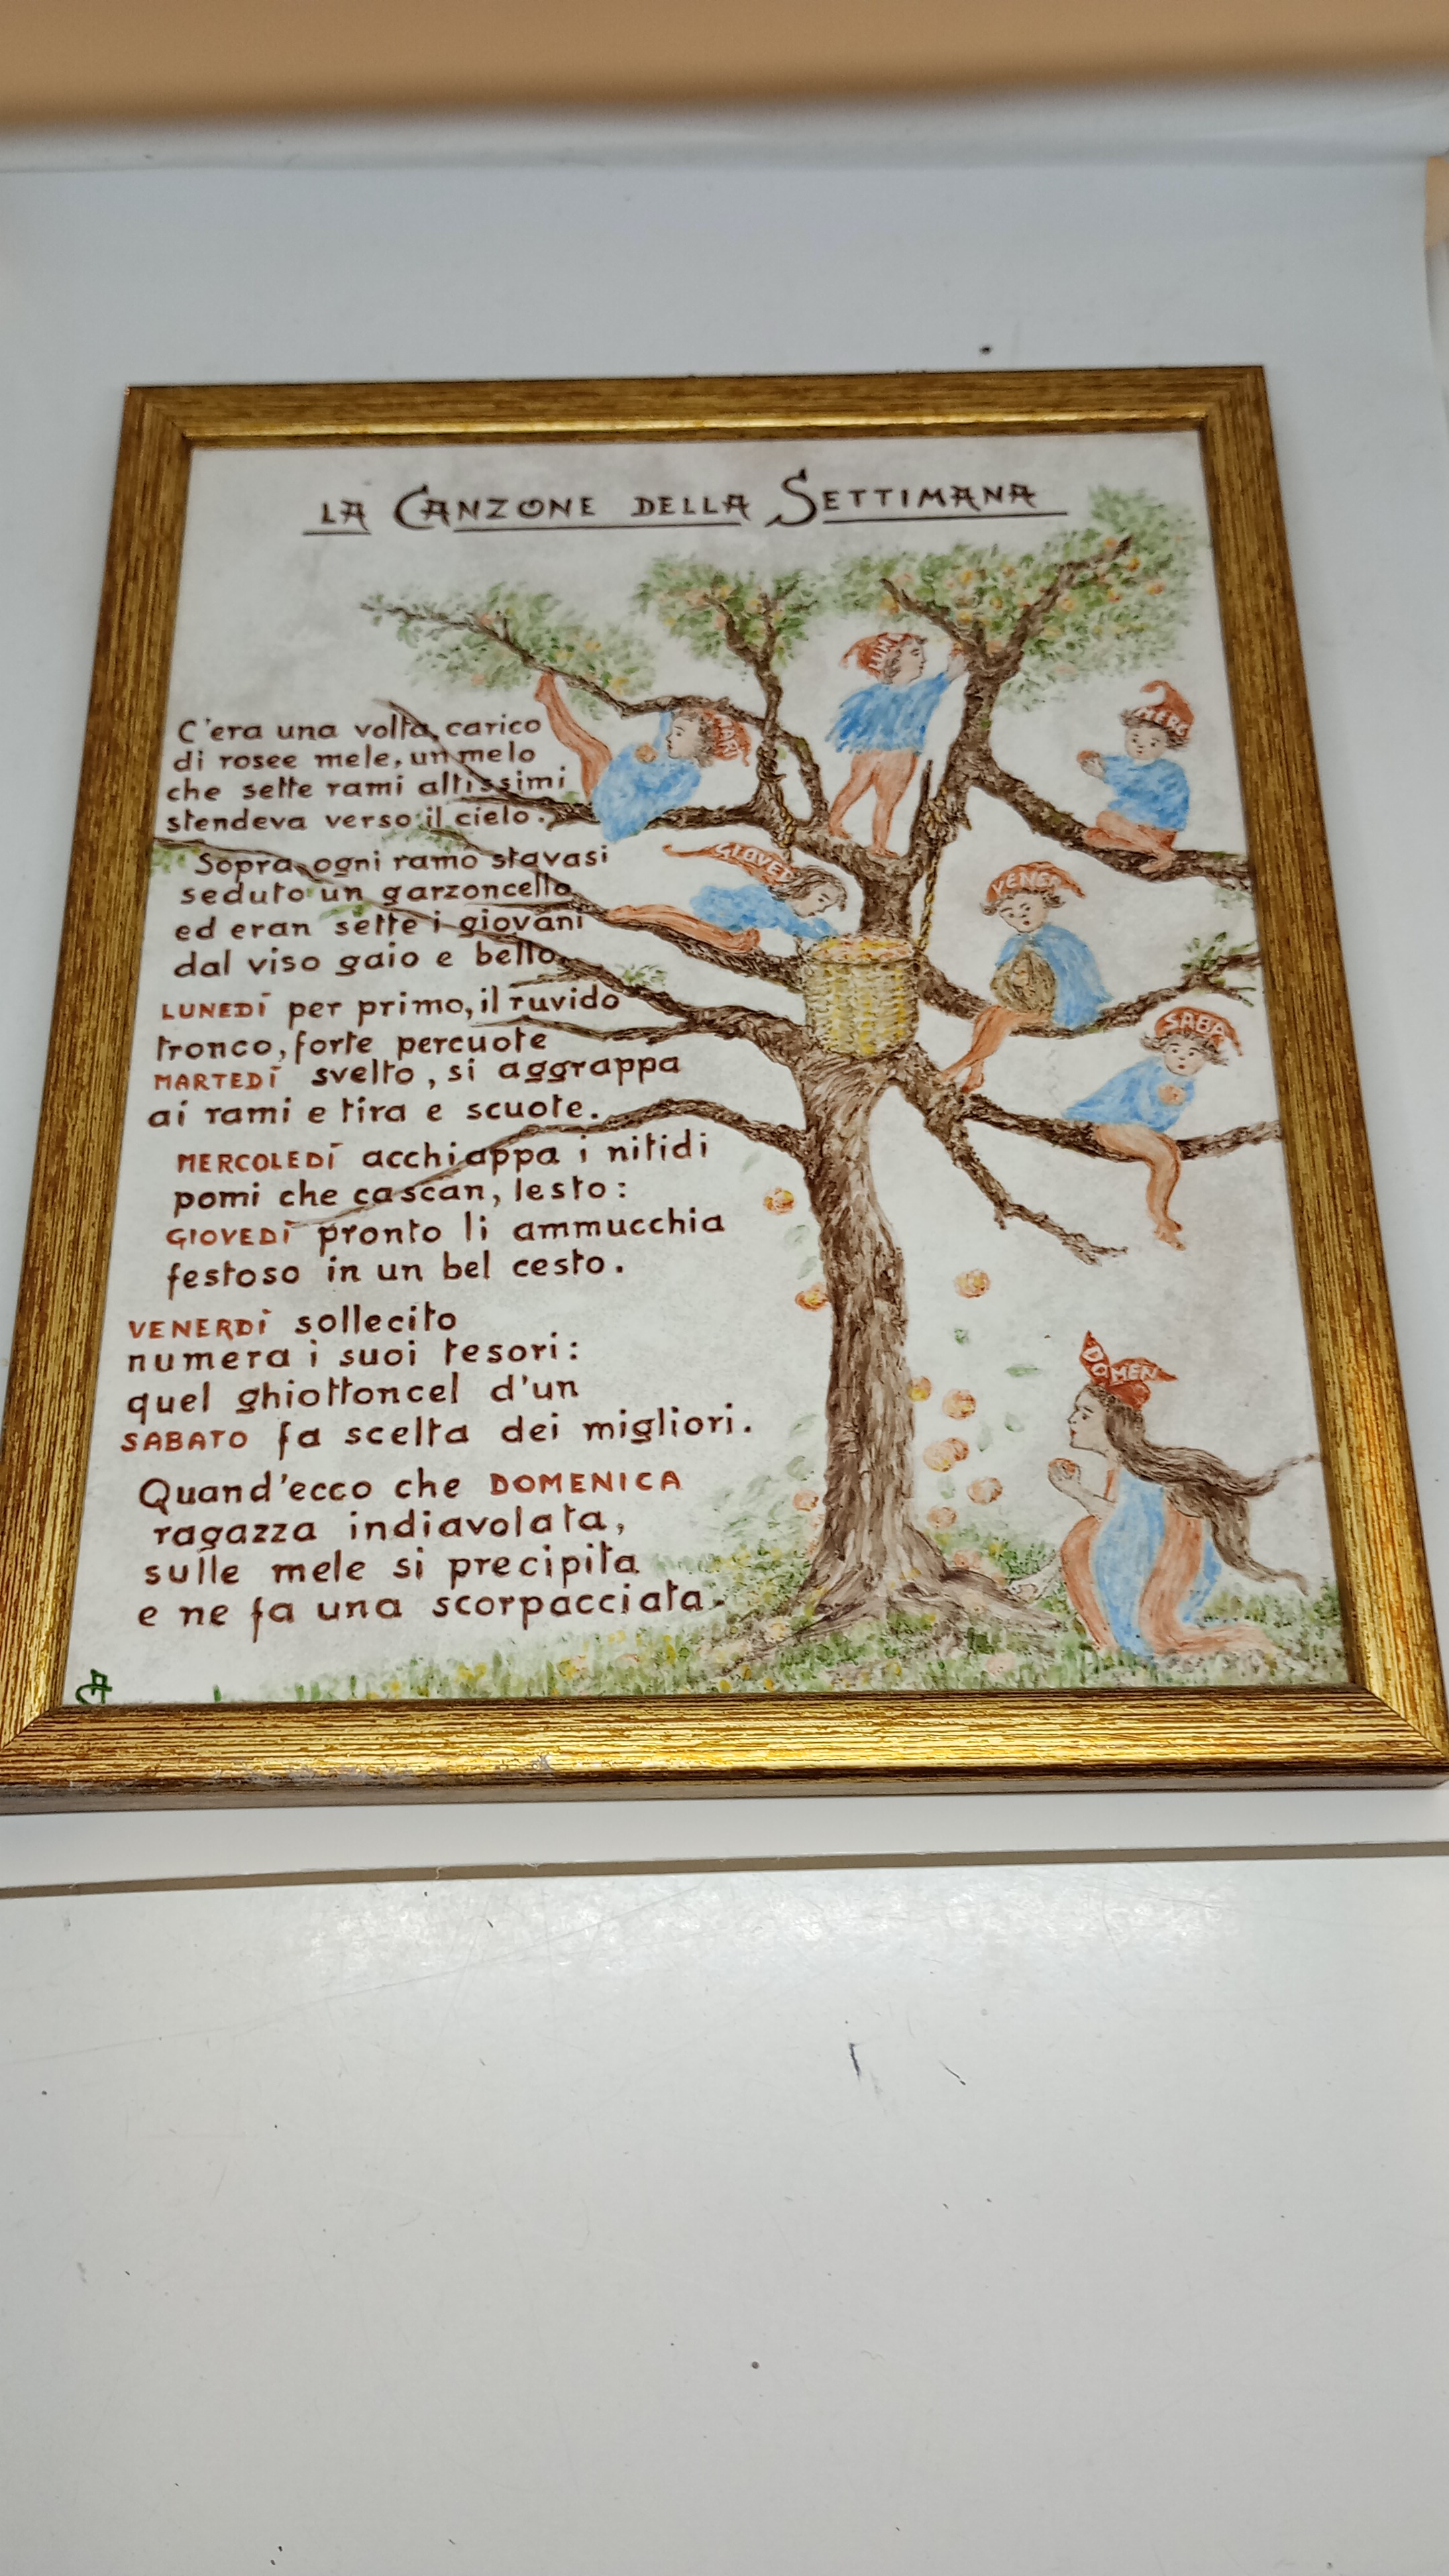 LA CANZONE DELLA SETTIMANA
C'era una volta, carico
di rosee mele, un melo
che sette rami altissimi
stendeva verso il cielo.
Sopra ogni ramo stavasi
seduto un garzoncello
ed eran sette i giovani
dal viso gaio e bello.
LUNEDÌ per primo, il ruvido
tronco, forte percuote
MARTEDÌ svelto, si aggrappa
ai rami e tira e scuote.
MERCOLEDÌ acchiappa i nitidi
pomi che cascan, lesto:
GIOVEDÌ pronto li ammucchia
festoso in un bel cesto.
VENERDÌ sollecito
numera i suoi tesori:
quel ghiottoncel d'un
SABATO fa scelta dei migliori.
Quand'ecco che DOMENICA
ragazza indiavolata,
sulle mele si precipita
e ne fa una scorpacciata.
LUNE
MART
MERC
GIOVED
VENER
SABA
DOMEN